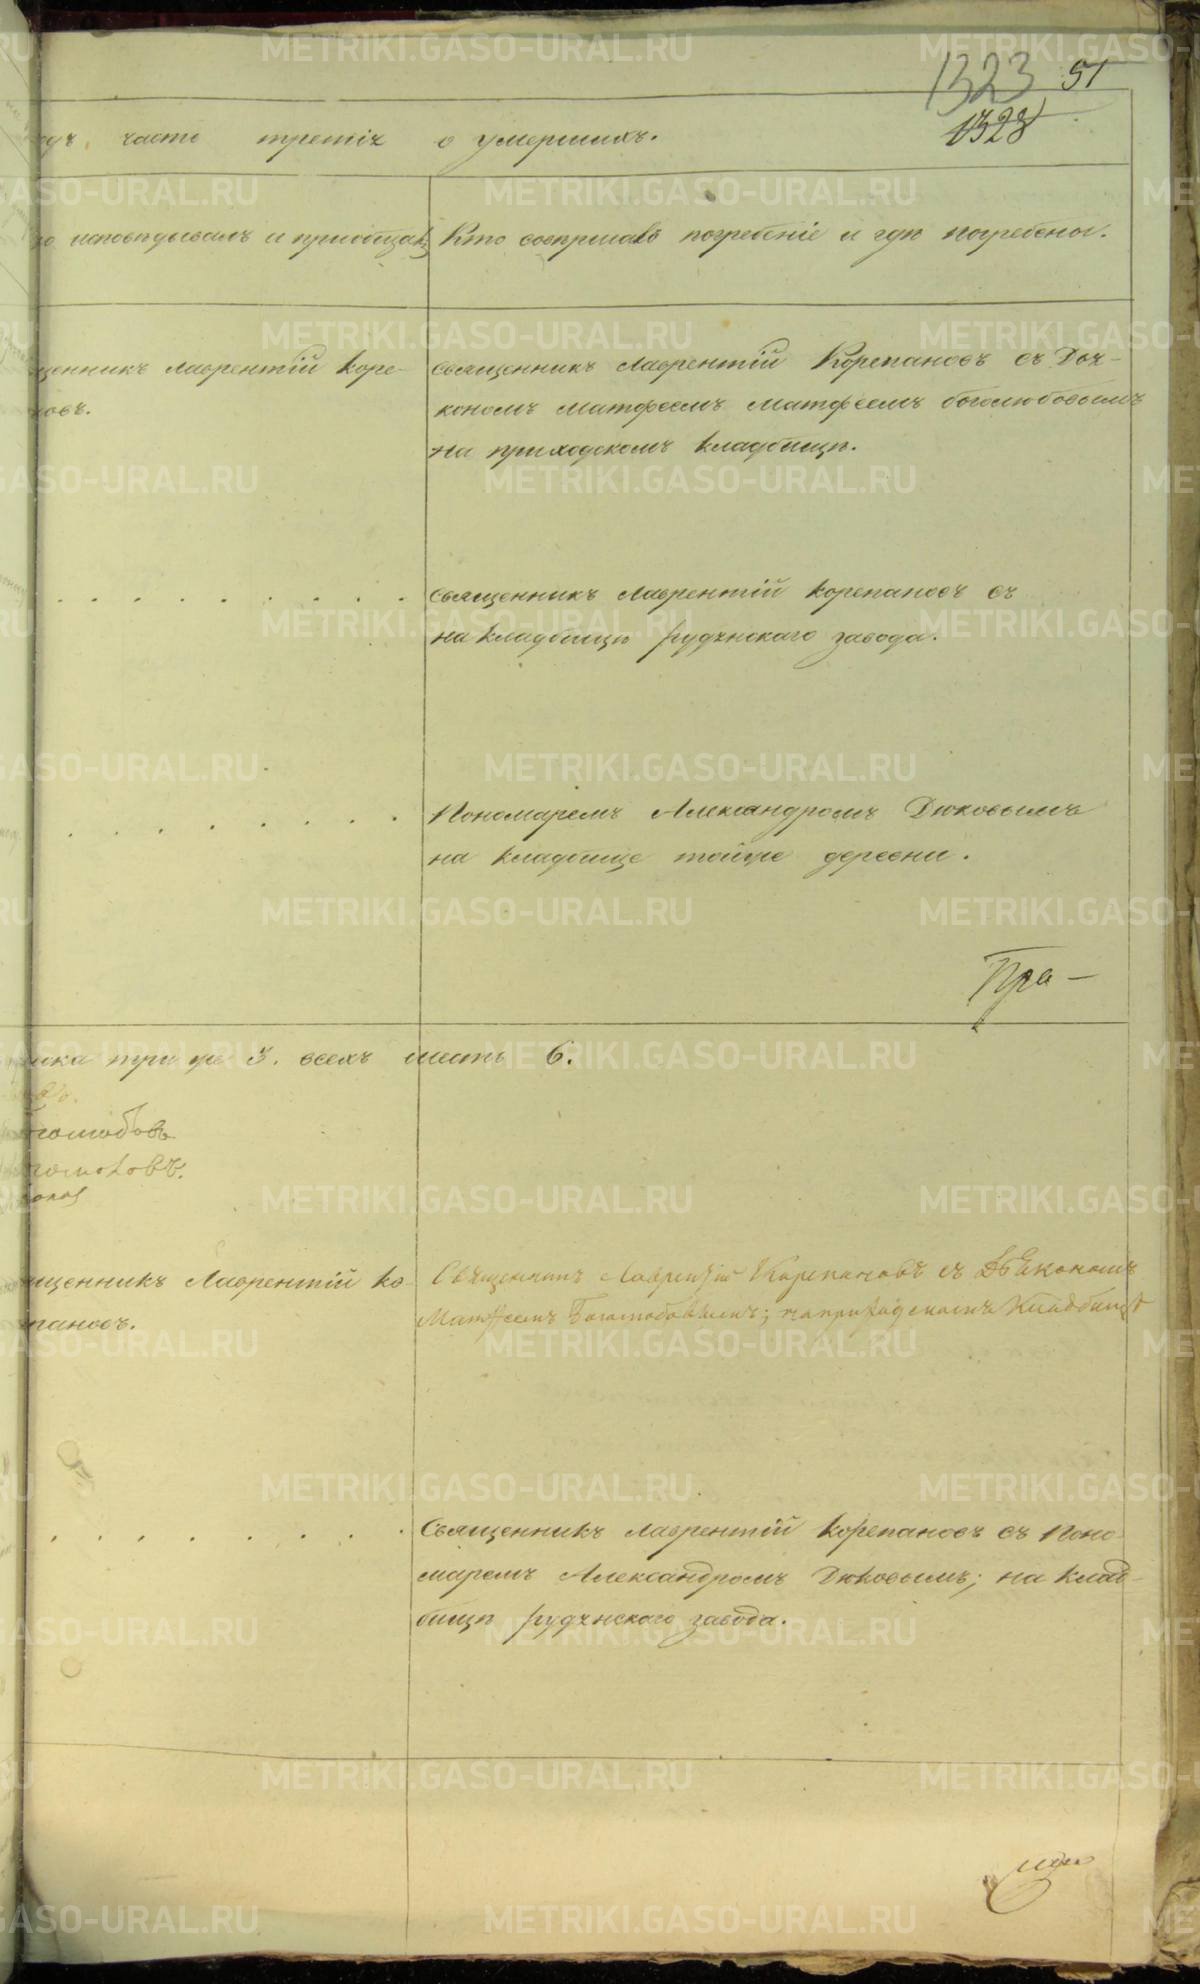 1323 51
1328
часть третія о умершихъ.
исповѣдывалъ и пріобщалъ Кто совершалъ погребеніе и гдѣ погребены.
щенникъ Лаврентій Коре-
новъ.
священникъ Лаврентій Корепановъ съ Дья-
кономъ Матфеемъ Матфеемъ Боголюбовымъ
на приходскомъ кладбищѣ.
. . . . . . . . . .
священникъ Лаврентій Корепановъ съ
на кладбищѣ рудянскаго завода.
. . . . . . . . .
Пономаремъ Александромъ Дюковымъ
на кладбище тойже деревни.
Пра-
три 3. всехъ шесть 6.
голюбовъ
щенникъ Лаврентій Ко-
пановъ.
Священникъ Лаврентій Корепановъ съ Дьякономъ
Матфеемъ Боголюбовымъ; на приходскомъ кладбищѣ
. . . . . . . . .
Священникъ Лаврентій Корепановъ съ Поно-
маремъ Александромъ Дюковымъ; на клад-
бищѣ рудянскаго завода.
METRIKI.GASO-URAL.RU